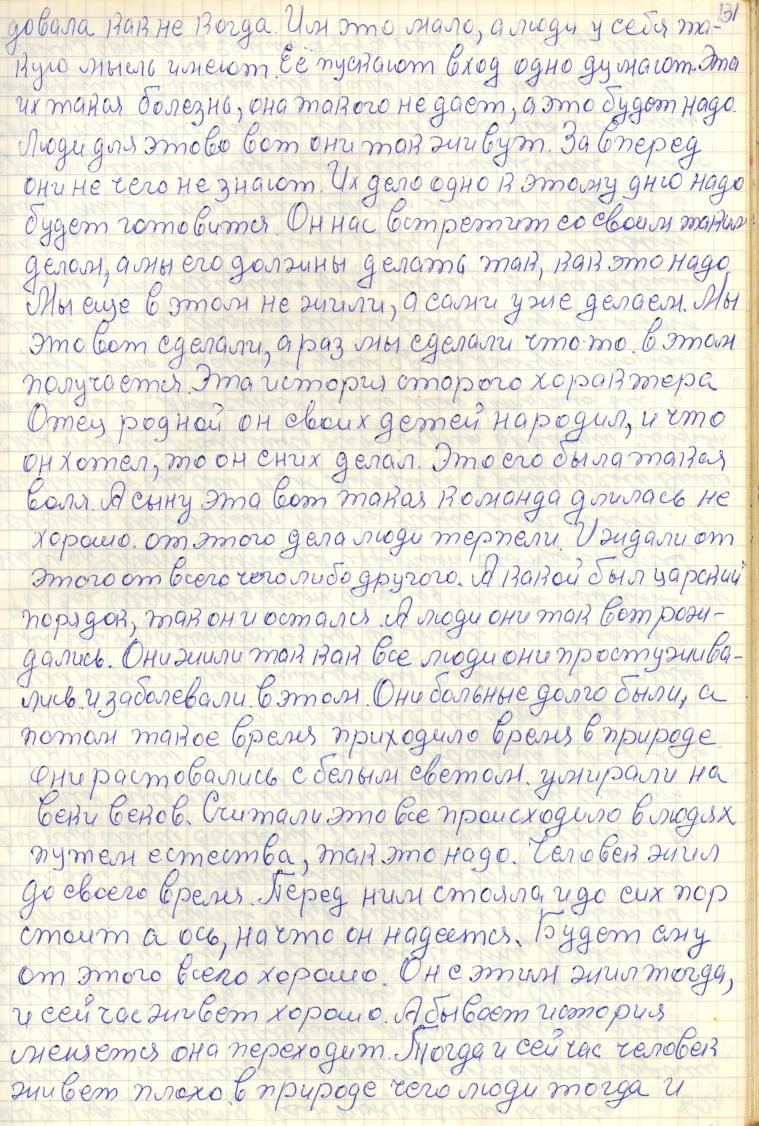 131
довала как не когда. Им это мало, а люди у себя та-
кую мысль имеют. Её пускают вход одно думают. Эта
их такая болезнь, она такого не дает, а это будет надо.
Люди для этово вот они так живут. За вперед
они не чего не знают. Их дело одно к этому дню надо
будет готовится. Он нас встретит со своим таким
делом, а мы его должны делать так, как это надо.
Мы еще в этом не жили, а сами уже делаем. Мы
это вот сделали, а раз мы сделали что-то. в этом
получается. Эта история старого характера
Отец родной он своих детей народил, и что
он хотел, то он с них делал. Это его была такая
воля. А сыну эта вот такая команда длилась не
хорошо. от этого дела люди терпели. И ждали от
этого от всего чего либо другого. А какой был царский
порядок, так он и остался. А люди они так вот рож-
дались. Они жили так как все люди они простужива-
лись. и заболевали в этом. Они больные долго были, а
потом такое время приходило время в природе
они растовались с белым светом. умирали на
веки веков. Считали это все происходило в людях
путем естества, так это надо. Человек жил
до своего время. Перед ним стояла, и до сих пор
стоит а ось, на что он надеется. Будет ему
от этого всего хорошо. Он с этим жил тогда,
и сейчас живет хорошо. А бывает история
меняется она переходит. Тогда и сейчас человек
живет плохо. в природе чего люди тогда и